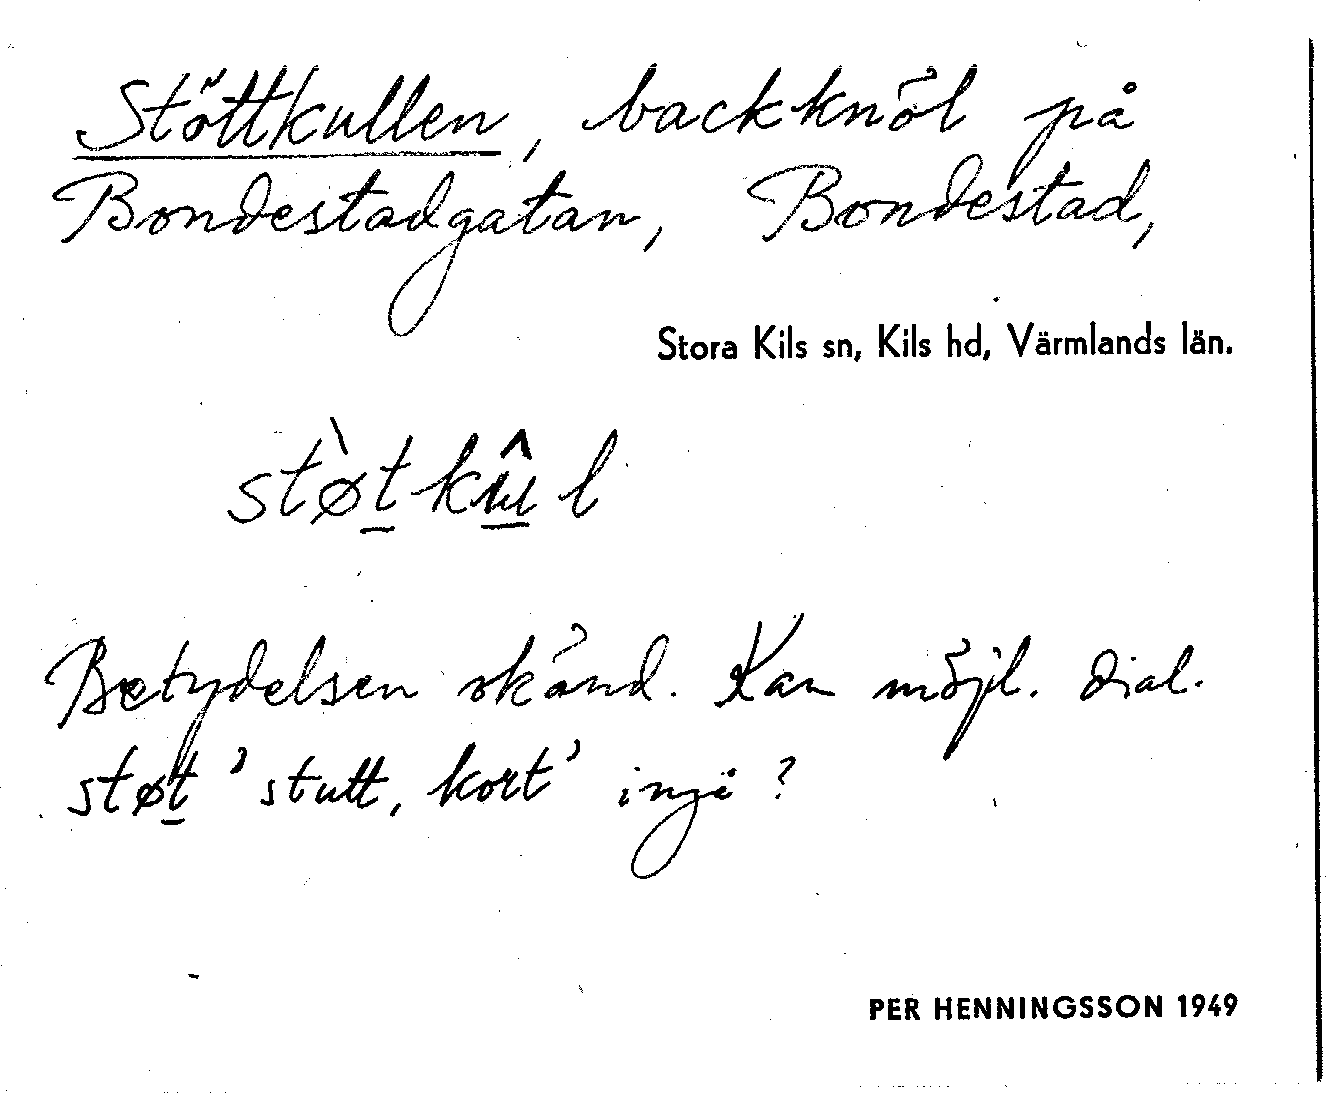 Stöttkullen, backknöl på
Bondestadgatan, Bondestad,
Stora Kils sn, Kils hd, Värmlands län.
stø̀t̲kɯ̲̂l
Betydelsen okänd. Kan möjl. dial.
støt̲ 'stutt, kort' ingå?
PER HENNINGSSON 1949